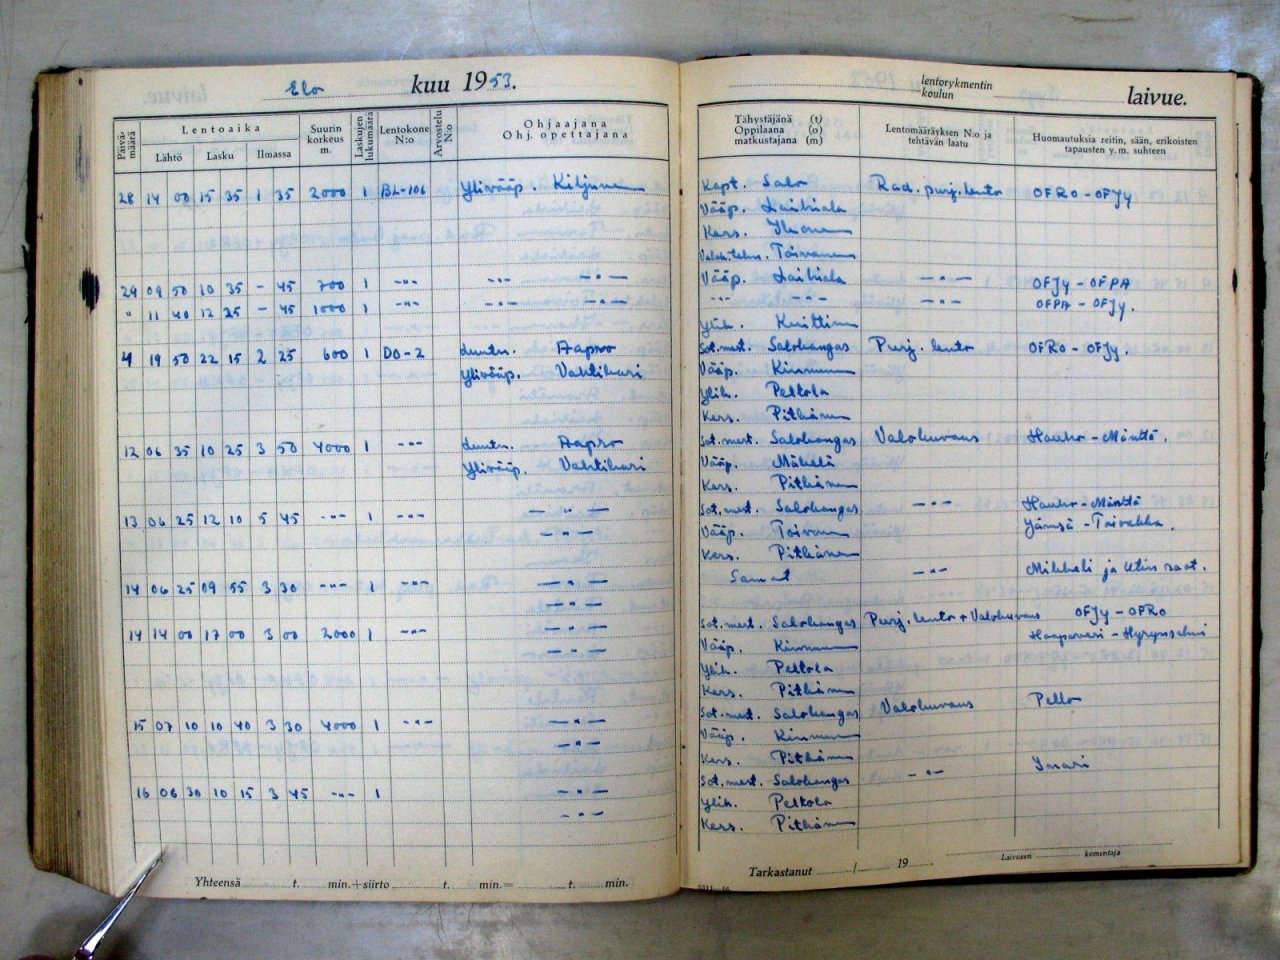 Elo kuu 1953.
lentorykmentin
koulun laivue.
Päivä-
määrä
Lentoaika
Lähtö Lasku Ilmassa
Suurin
korkeus
m.
Laskujen
lukumäärä
Lentokone
N:o
Arvostelu
N:o
Ohjaajana
Obj. opettajana
Tähystäjänä (t)
Oppilaana (o)
matkustajana (m)
Lentomääräyksen N:o ja
tehtävän laatu
Huomautuksia reitin, sään, erikoisten
tapausten y. m. suhteen
28 14 00 15 35 1 35 2000 1 BL-106 Ylivääp. Kiljunen Kapt. Salo Rad. purj. lento OFRO - OFJy
Vääp. Laihiala
Kers. Ihonen
Toivanen
29 09 50 10 35 - 45 700 1 -"- -"- -"- Vääp. Laihiala -"- OFJy - OFPA
" 11 40 12 25 - 45 1000 1 -"- -"- -"- -"- -"- -"- OFPA - OFJy.
Ylik. Knittinen
4 19 50 22 15 2 25 600 1 DO-2 Luutn. Aapro Sot.mest. Salokangas Purj. lento OFRO - OFJy.
Ylivääp. Vahtikari Vääp. Kinnunen
Ylik. Peltola
Kers. Pitkänen
12 06 35 10 25 3 50 4000 1 -"- Luutn. Aapro Sot.mest. Salokangas Valokuvaus Hauho - Mänttä.
Ylivääp. Vahtikari Vääp. Mäkelä
Kers. Pitkänen
13 06 25 12 10 5 45 -"- 1 -"- -"- Sot.mest. Salokangas -"- Hauho - Mänttä
-"- Vääp. Toivonen Jämsä - Toivakka.
Kers. Pitkänen
14 06 25 09 55 3 30 -"- 1 -"- -"- Samat -"- Mikkeli ja Utin saat.
-"-
14 14 00 17 00 3 00 2000 1 -"- -"- Sot.mest. Salokangas Purj. lento + Valokuvaus OFJy - OFRO
-"- Vääp. Kinnunen Haapavesi - Hyrynsalmi
Ylik. Peltola
Kers. Pitkänen
15 07 10 10 40 3 30 4000 1 -"- -"- Sot.mest. Salokangas Valokuvaus Pello
-"- Vääp. Kinnunen
Kers. Pitkänen
16 06 30 10 15 3 45 -"- 1 -"- Sot.mest. Salokangas -"- Inari
-"- Ylik. Peltola
Kers. Pitkänen
Yhteensä t. min.+siirto t. min.= t. min.
Tarkastanut / 19 Laivueen komentaja